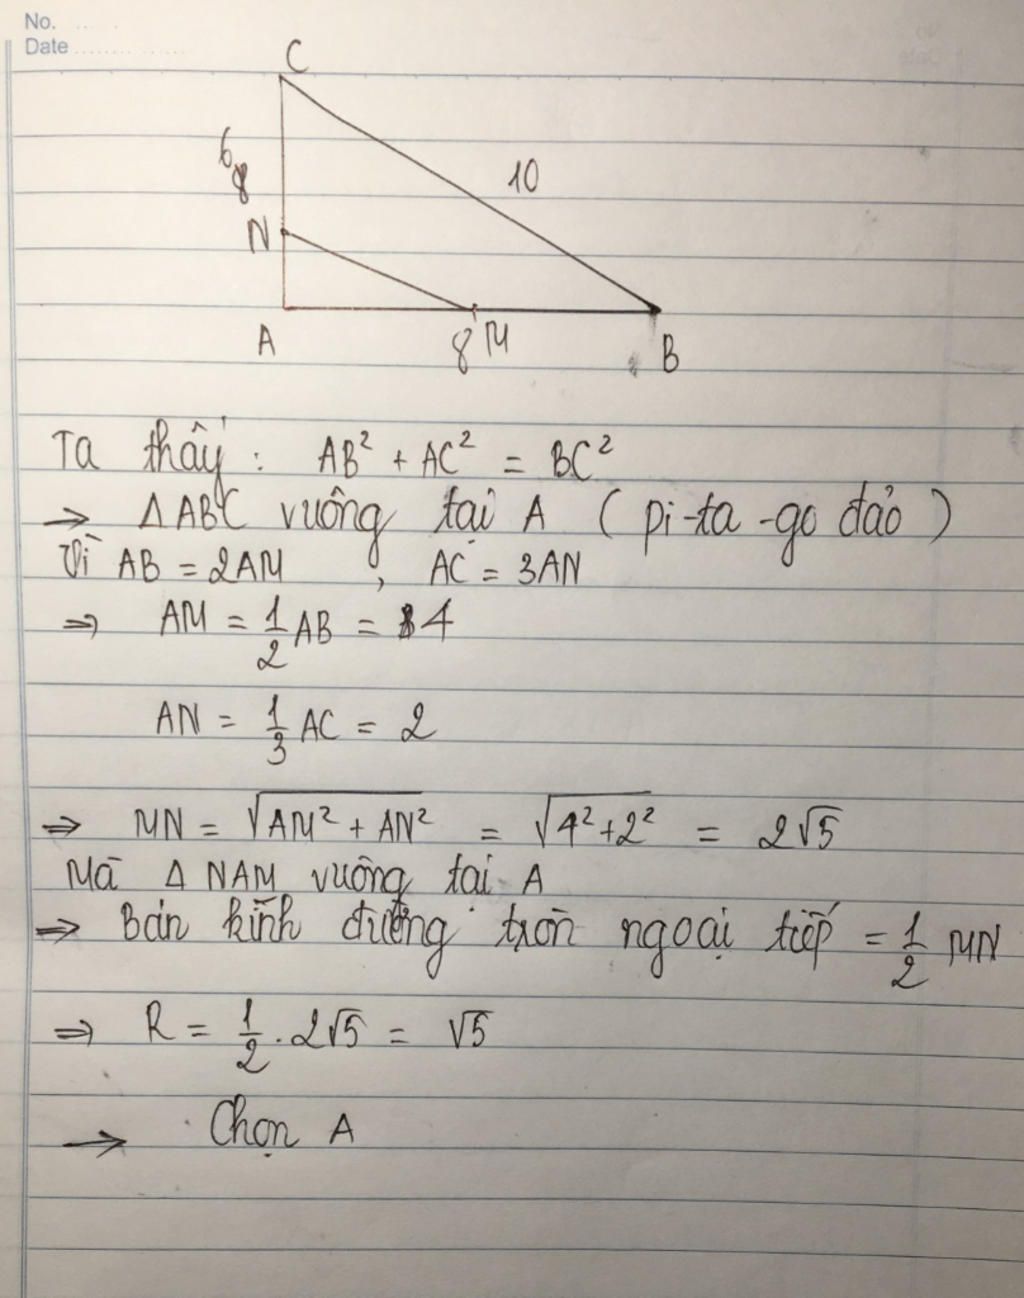 No.
Date
C
6
8
10
N
A
8 M
B
Ta thấy : AB² + AC² = BC²
⇒ ΔABC vuông tại A ( pi-ta-go đảo )
Vì AB = 2AM , AC = 3AN
⇒ AM = 1/2 AB = 4
AN = 1/3 AC = 2
⇒ MN = √(AM² + AN²) = √(4²+2²) = 2√5
Mà Δ NAM vuông tại A
⇒ Bán kính đường tròn ngoại tiếp = 1/2 MN
⇒ R = 1/2 . 2√5 = √5
→ Chọn A